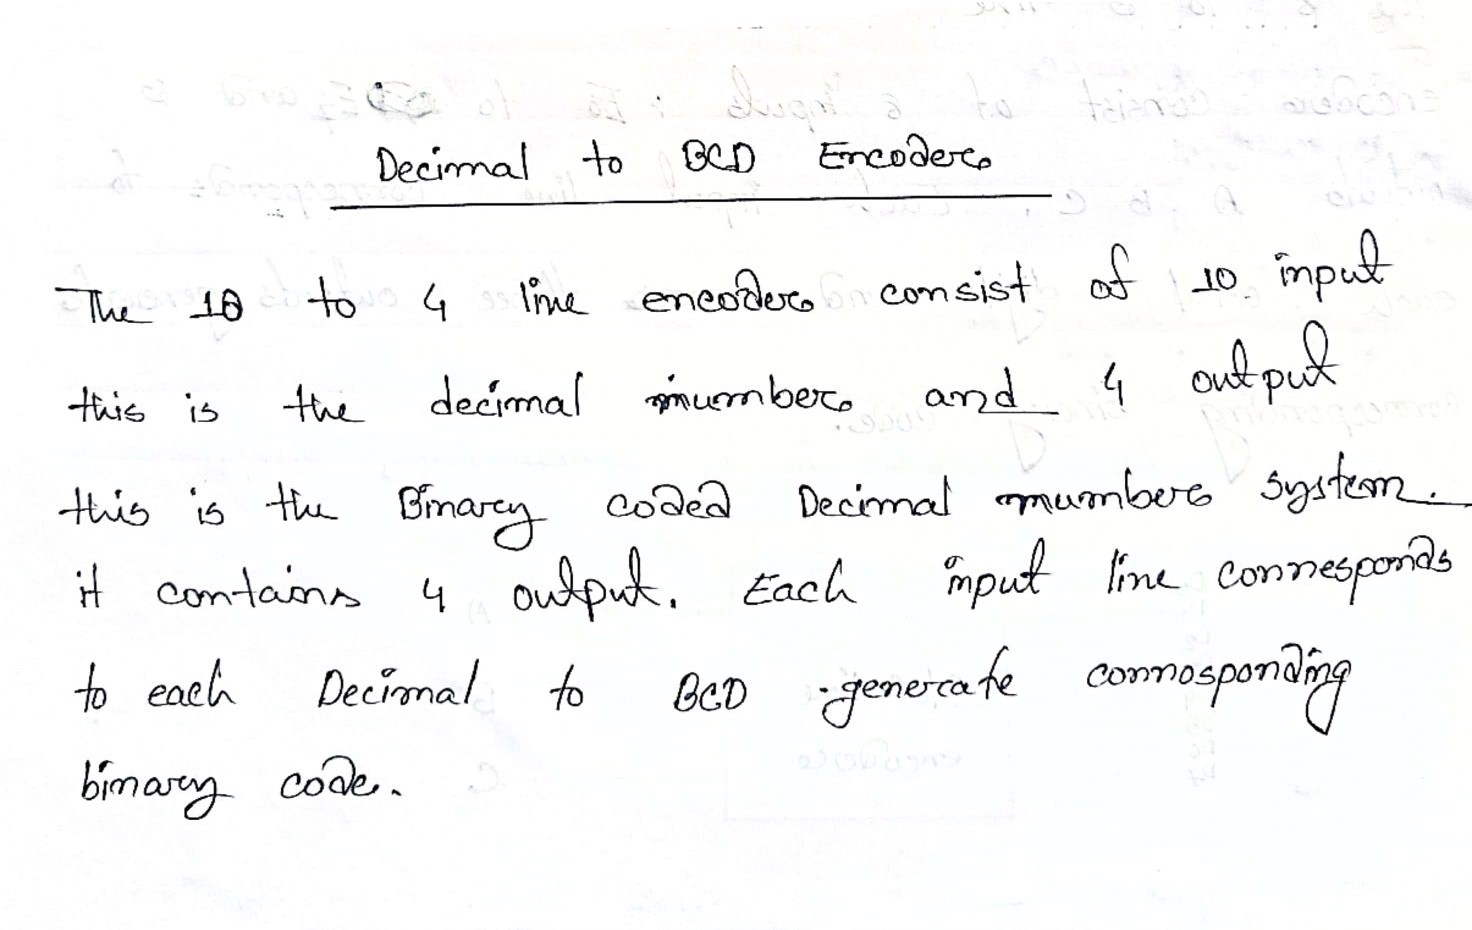 Decimal to BCD Encoder
The 10 to 4 line encoder consist of 10 input
this is the decimal number and 4 output
this is the Binary coded Decimal number system.
it contains 4 output. Each input line connesponds
to each Decimal to BCD generate connosponding
binary code.